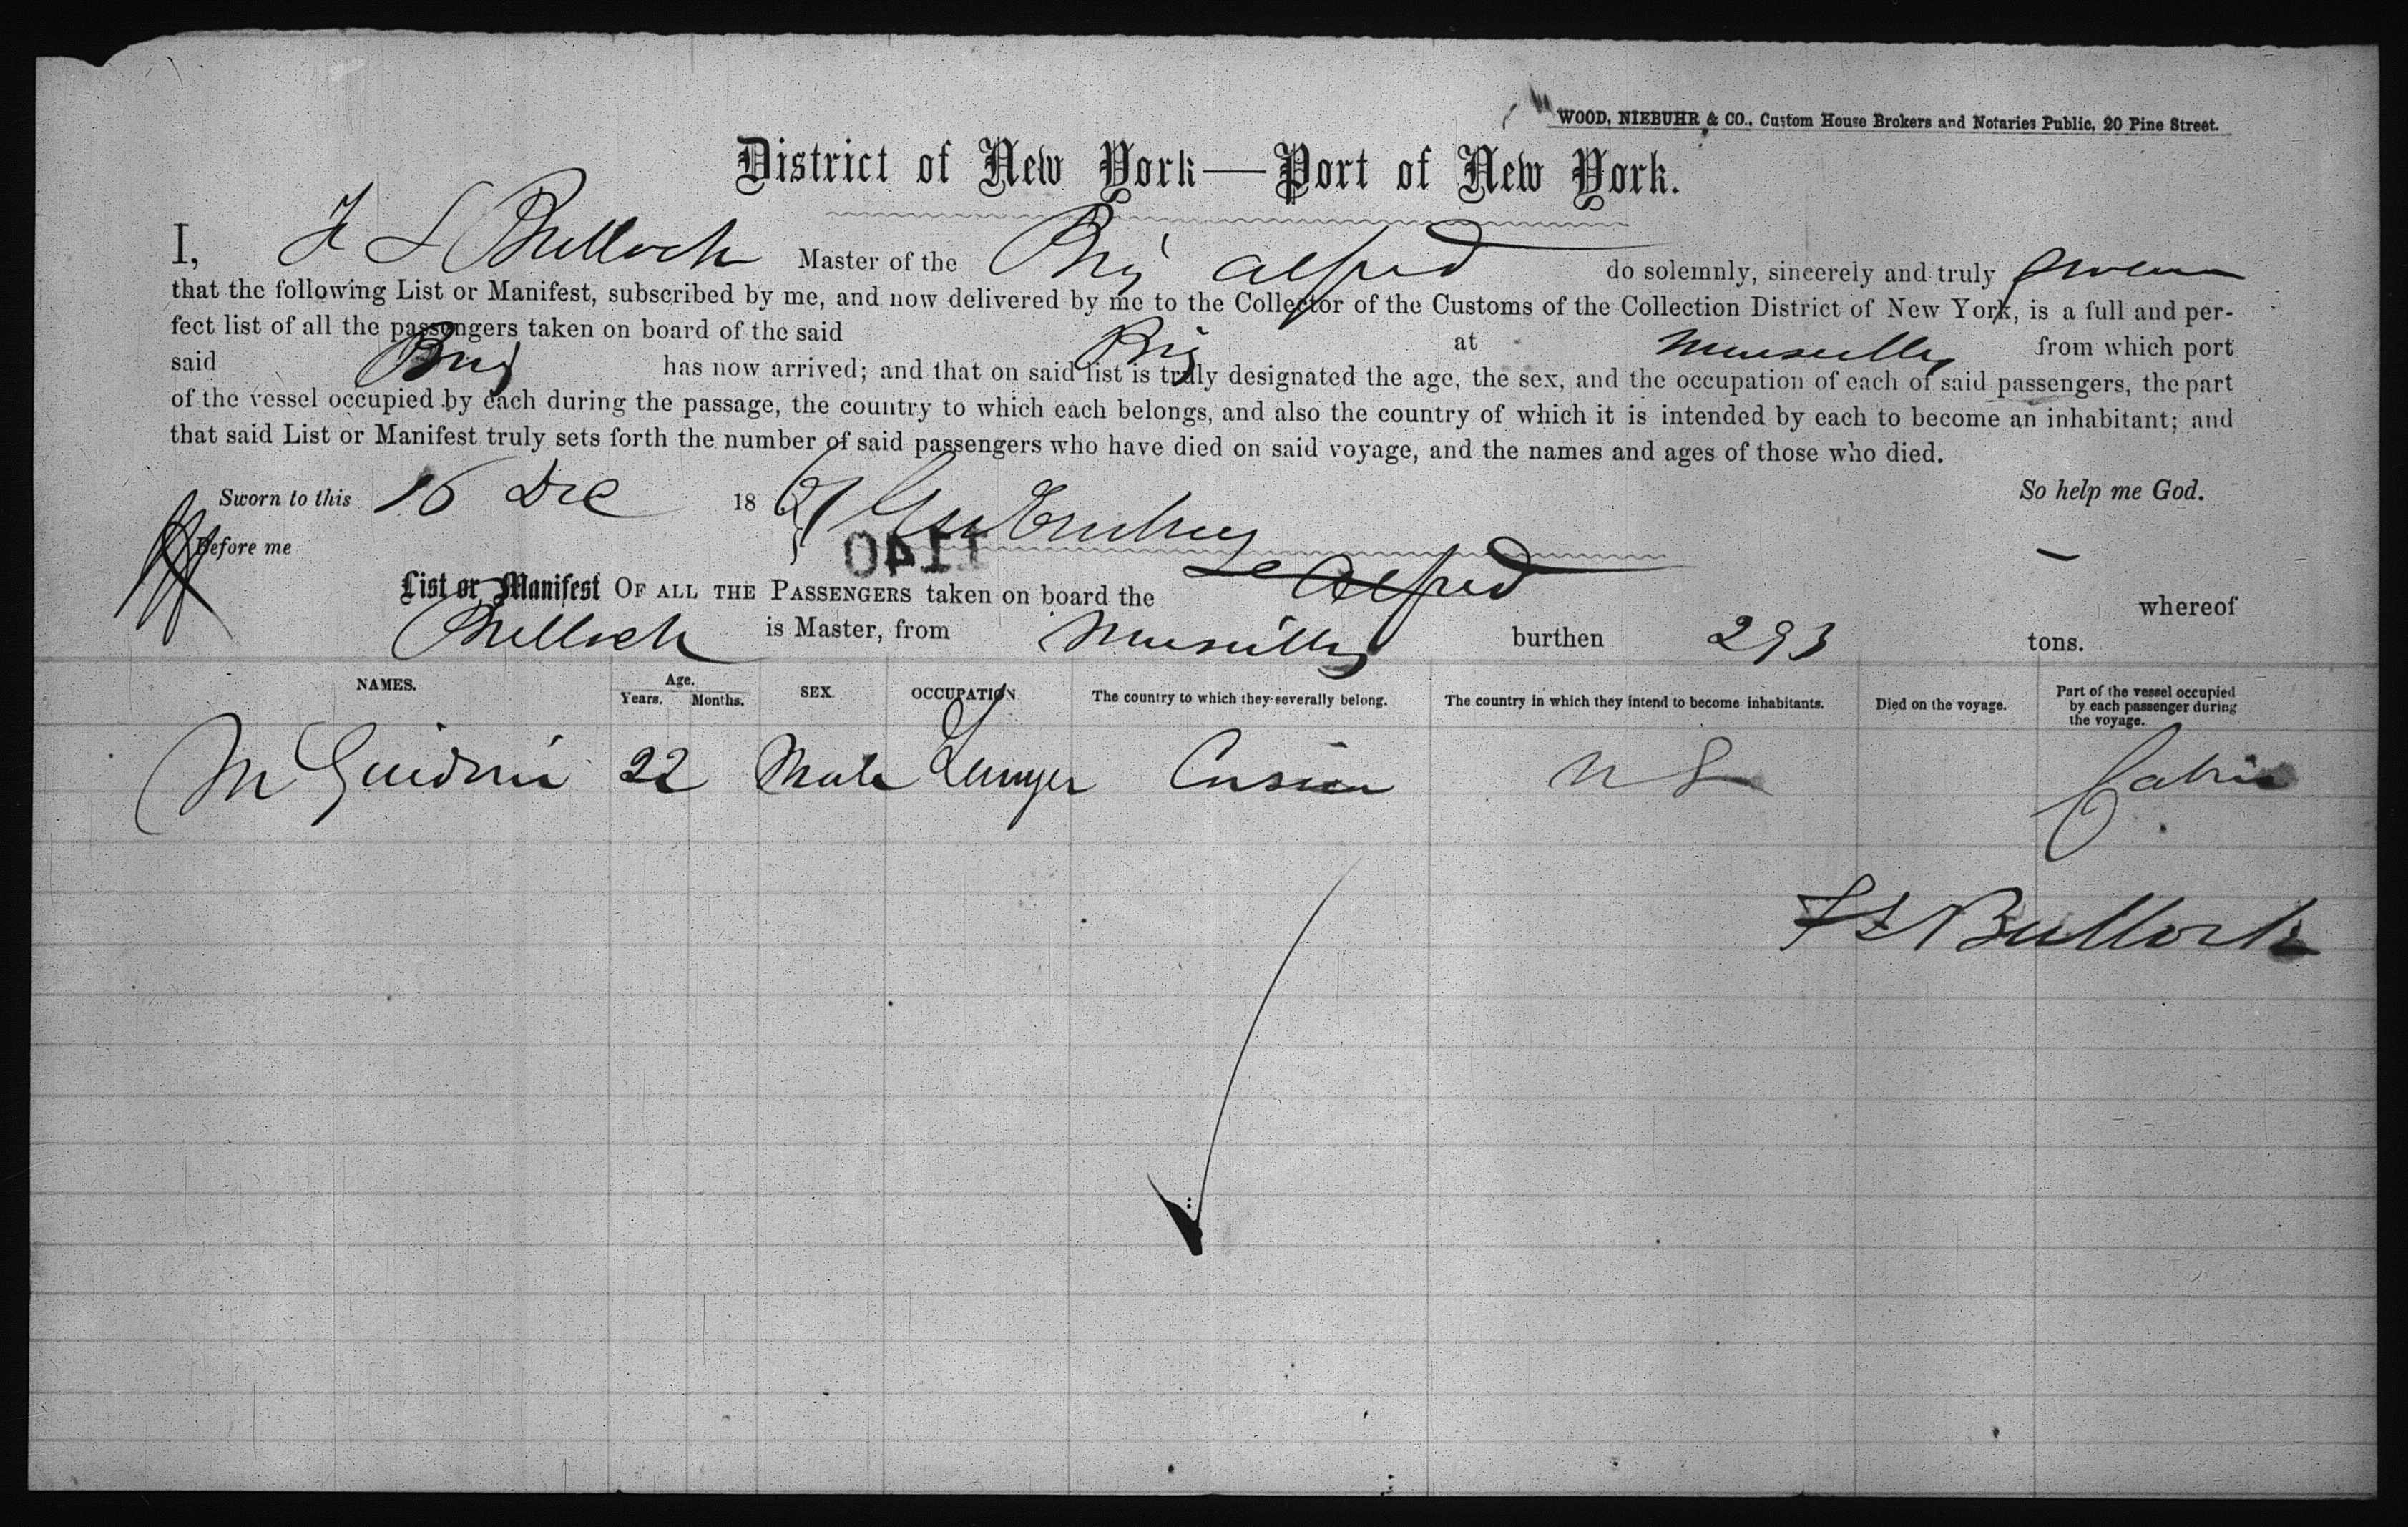 WOOD, NIEBUHR & CO., Custom House Brokers and Notaries Public, 20 Pine Street.
District of New York—Port of New York.
I, F S Bullock Master of the Brig Alfred do solemnly, sincerely and truly swear
that the following List or Manifest, subscribed by me, and now delivered by me to the Collector of the Customs of the Collection District of New York, is a full and per-
fect list of all the passengers taken on board of the said Brig at Marseilles from which port
said Brig has now arrived; and that on said list is truly designated the age, the sex, and the occupation of each of said passengers, the part
of the vessel occupied by each during the passage, the country to which each belongs, and also the country of which it is intended by each to become an inhabitant; and
that said List or Manifest truly sets forth the number of said passengers who have died on said voyage, and the names and ages of those who died.
Sworn to this 16 Dec 1861 So help me God.
Before me
1140
List or Manifest OF ALL THE PASSENGERS taken on board the Alfred whereof
Bullock is Master, from Marseilles burthen 293 tons.
NAMES. Age. Years. Months. SEX. OCCUPATION The country to which they severally belong. The country in which they intend to become inhabitants. Died on the voyage. Part of the vessel occupied by each passenger during the voyage.
M 22 Male Lawyer Cabin
F S Bullock